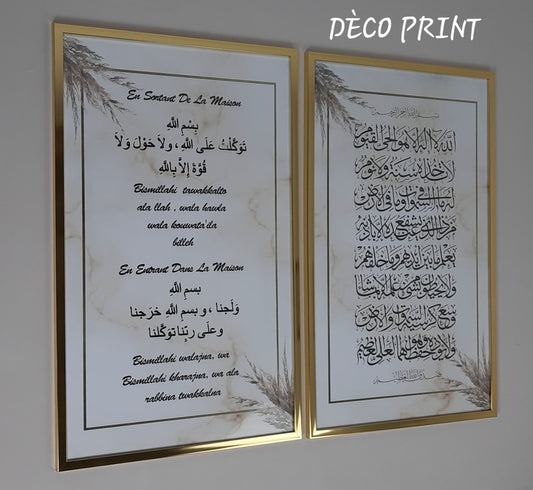 DÈCO PRINT
En Sortant De La Maison
بِسْمِ اللَّهِ
تَوَكَّلْتُ عَلَى اللَّهِ ، ولاَ حَوْلَ وَلاَ
قُوَّةَ إِلاَّ بِاللَّهِ
Bismillahi tawakkalto
ala llah , wala hawla
wala kouwata'ila
billeh
En Entrant Dans La Maison
بسم اللَّهِ
وَلَجنا ، و بسم اللَّهِ خَرَجنا
وعلَى ربِّنا توَكَّلنا
Bismillahi walajna, wa
Bismillahi kharajna, wa ala
rabbina twakkalna
بسم الله الرحمن الرحيم
الله لا إله إلا هو الحي القيوم
لا تأخذه سنة ولا نوم
له ما في السموات وما في الأرض
من ذا الذي يشفع عنده إلا بإذنه
يعلم ما بين أيديهم وما خلفهم
ولا يحيطون بشيء من علمه إلا بما شاء
وسع كرسيه السموات والأرض
ولا يؤده حفظهما وهو العلي العظيم
صدق الله العظيم